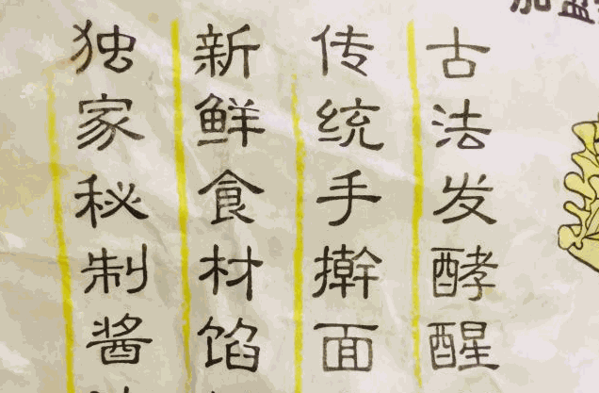 古法发酵醒
传统手擀面
新鲜食材馅
独家秘制酱
加盟